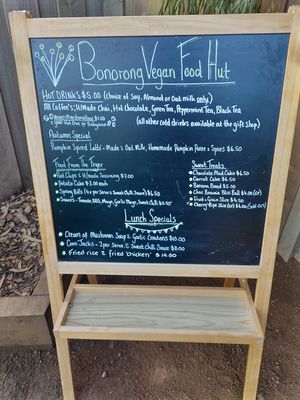 Bonorong Vegan Food Hut
Hot DRINKS $5.00 (choice of Soy, Almond or Oat milk only)
All Coffee's, H/Made Chai, Hot Chocolate, Green Tea, Peppermint Tea, Black Tea
Vegan Marshmallow $1.00
(all other cold drinks available at the gift shop)
Autumn Special
Pumpkin Spiced Latte - Made w Oat milk, Homemade Pumpkin Puree & Spices $6.50
Food From The Fryer
Hot Chips w H/made Seasoning $7.00
Potato Cake $3.00 each
Spring Rolls (4 x per serve w Sweet Chilli Sauce) $6.50
Sauces - Tomato, BBQ, Mayo, Garlic Mayo, Sweet Chilli
Sweet Treats
Chocolate Mud Cake $6.50
Carrot Cake $6.50
Banana Bread $5.00
Choc Brownie Slice
Fruit & Grain Slice $4.50
Cherry Ripe Slice
Lunch Specials
Cream of Mushroom Soup & Garlic Croutons $10.00
Corn Jacks - 2 per serve w Sweet Chilli Sauce $8.00
Fried rice & fried 'chicken'